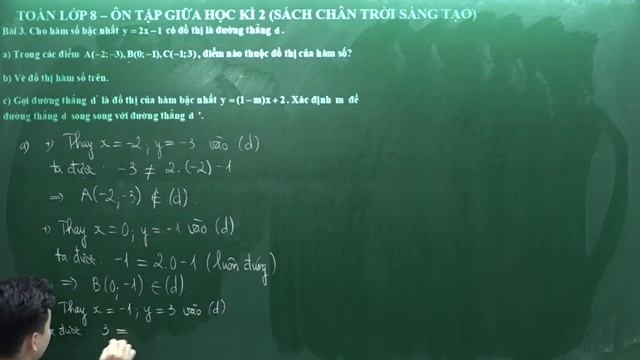 TOÁN LỚP 8 – ÔN TẬP GIỮA HỌC KÌ 2 (SÁCH CHÂN TRỜI SÁNG TẠO)
Bài 3. Cho hàm số bậc nhất y = 2x − 1 có đồ thị là đường thẳng d.
a) Trong các điểm A(−2; −3), B(0; −1), C(−1; 3), điểm nào thuộc đồ thị của hàm số?
b) Vẽ đồ thị hàm số trên.
c) Gọi đường thẳng d' là đồ thị của hàm bậc nhất y = (1 − m)x + 2. Xác định m để
đường thẳng d song song với đường thẳng d '.
a) +) Thay x = −2; y = −3 vào (d)
ta được: −3 ≠ 2.(−2) −1
⇒ A(−2; −3) ∉ (d).
+) Thay x = 0; y = −1 vào (d)
ta được: −1 = 2.0 − 1 (luôn đúng)
⇒ B(0; −1) ∈ (d)
Thay x = −1; y = 3 vào (d)
được: 3 =